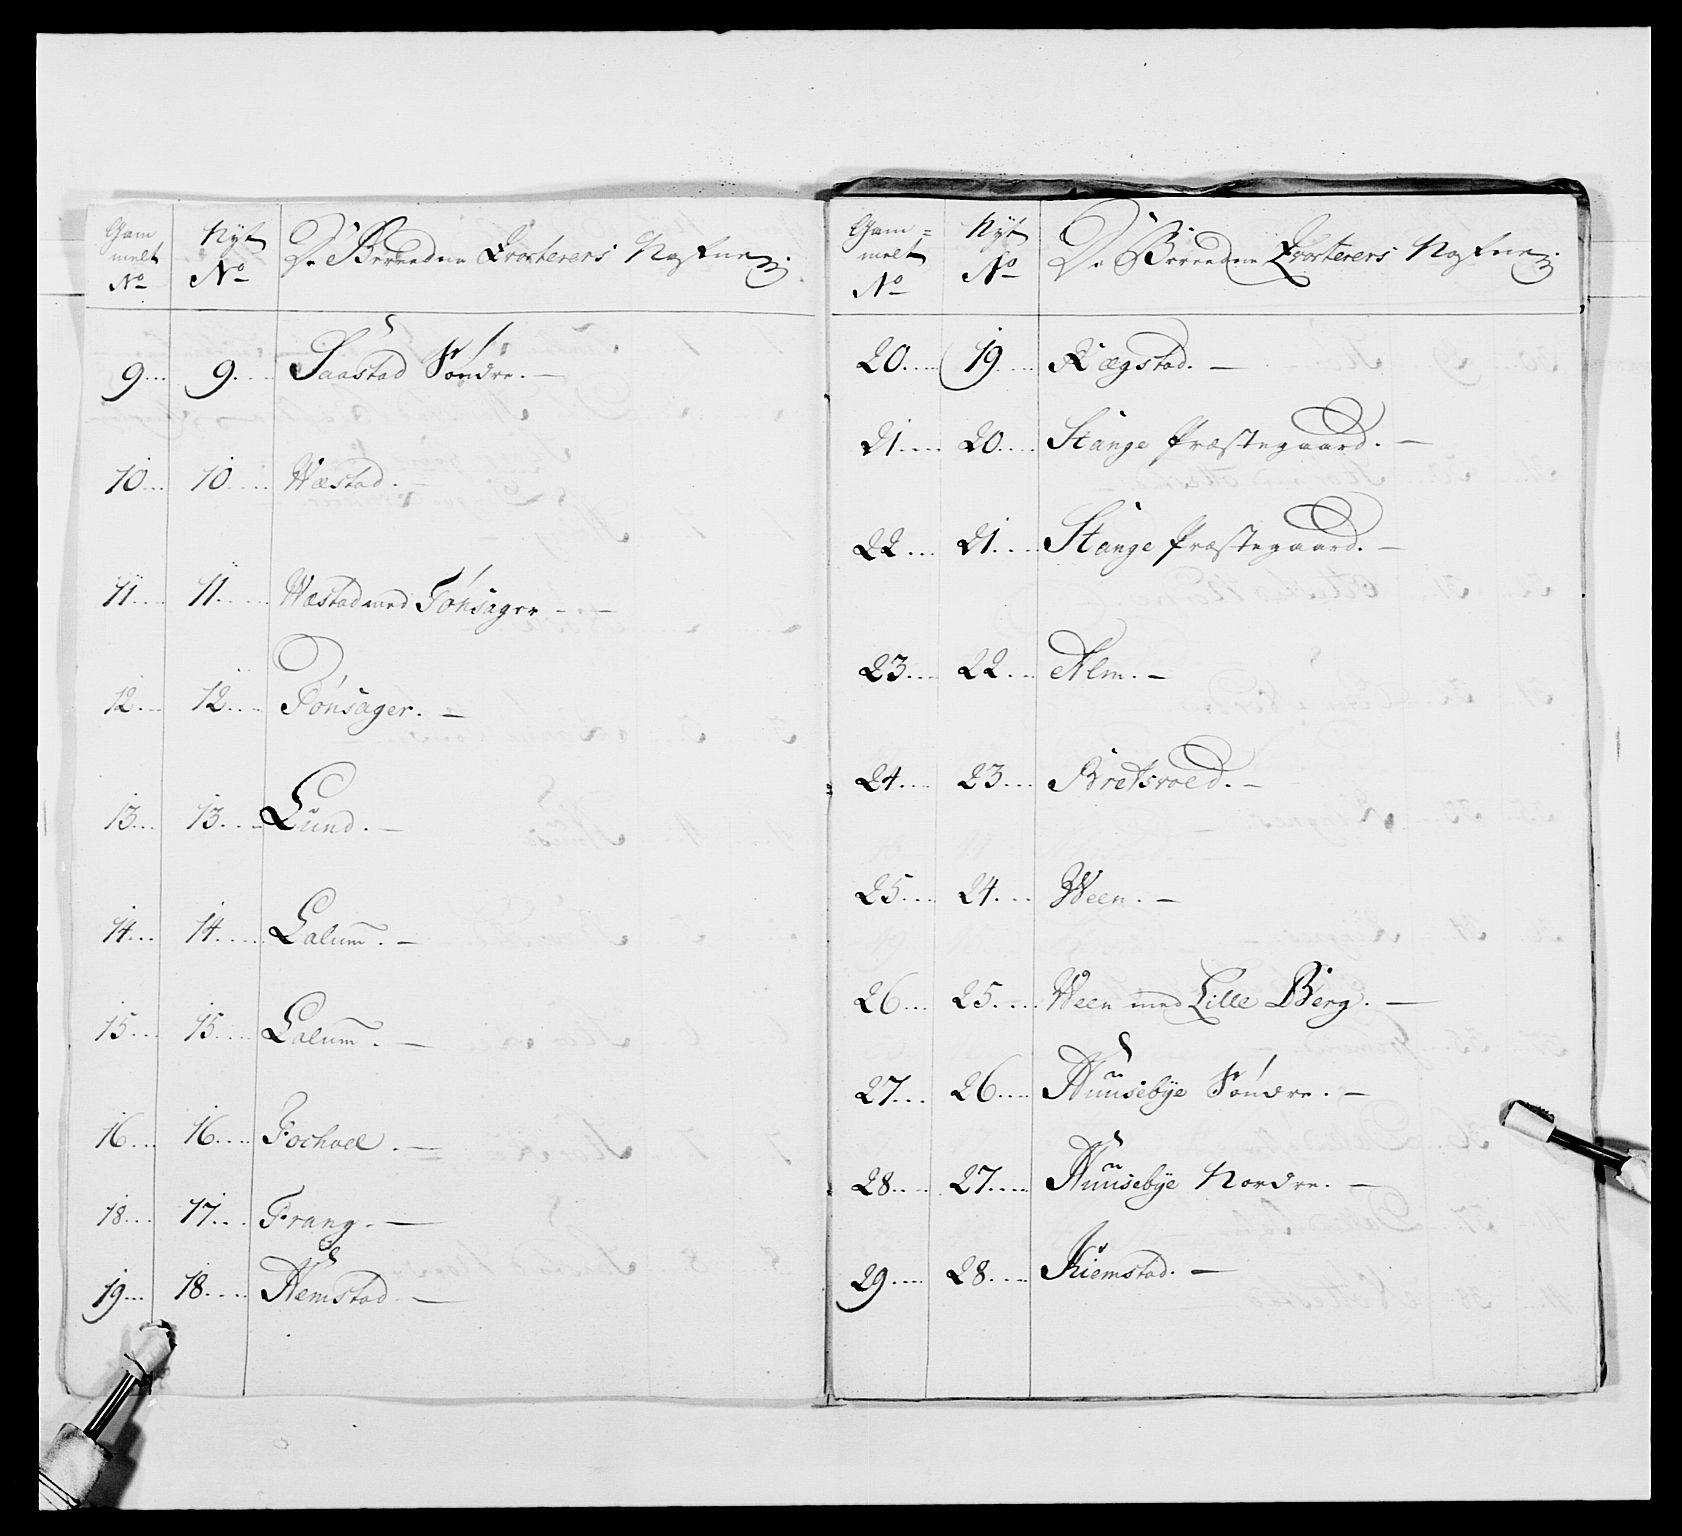 Gam
melt
No
Nyt
No
De Beredne Qvarterers Nafne.
9... 9.... Saastad Søndre. —
10... 10.... Wæstad. —
11... 11.... Wæstad med Tønsager —
12... 12... Tønsager. —
13... 13.... Lund. —
14... 14.... Lalum. —
15... 15.... Lalum. —
16... 16.... Fochoel. —
18... 17... Frang. —
19... 18.... Hemstad. —
Gam=
melt
No
Nyt
No
De Beredne Qvarterers Nafne.
20.... 19.... Rægstad. —
21.... 20.... Stange Præstegaard. —
22... 21.... Stange Præstegaard. —
23... 22... Alm. —
24... 23... Bretsroed. —
25... 24... Ween. —
26... 25.... Ween med Lille Berg. —
27... 26.... Huusebÿe Søndre. —
28... 27.... Huusebÿe Nordre. —
29... 28.... Kiemstad. —